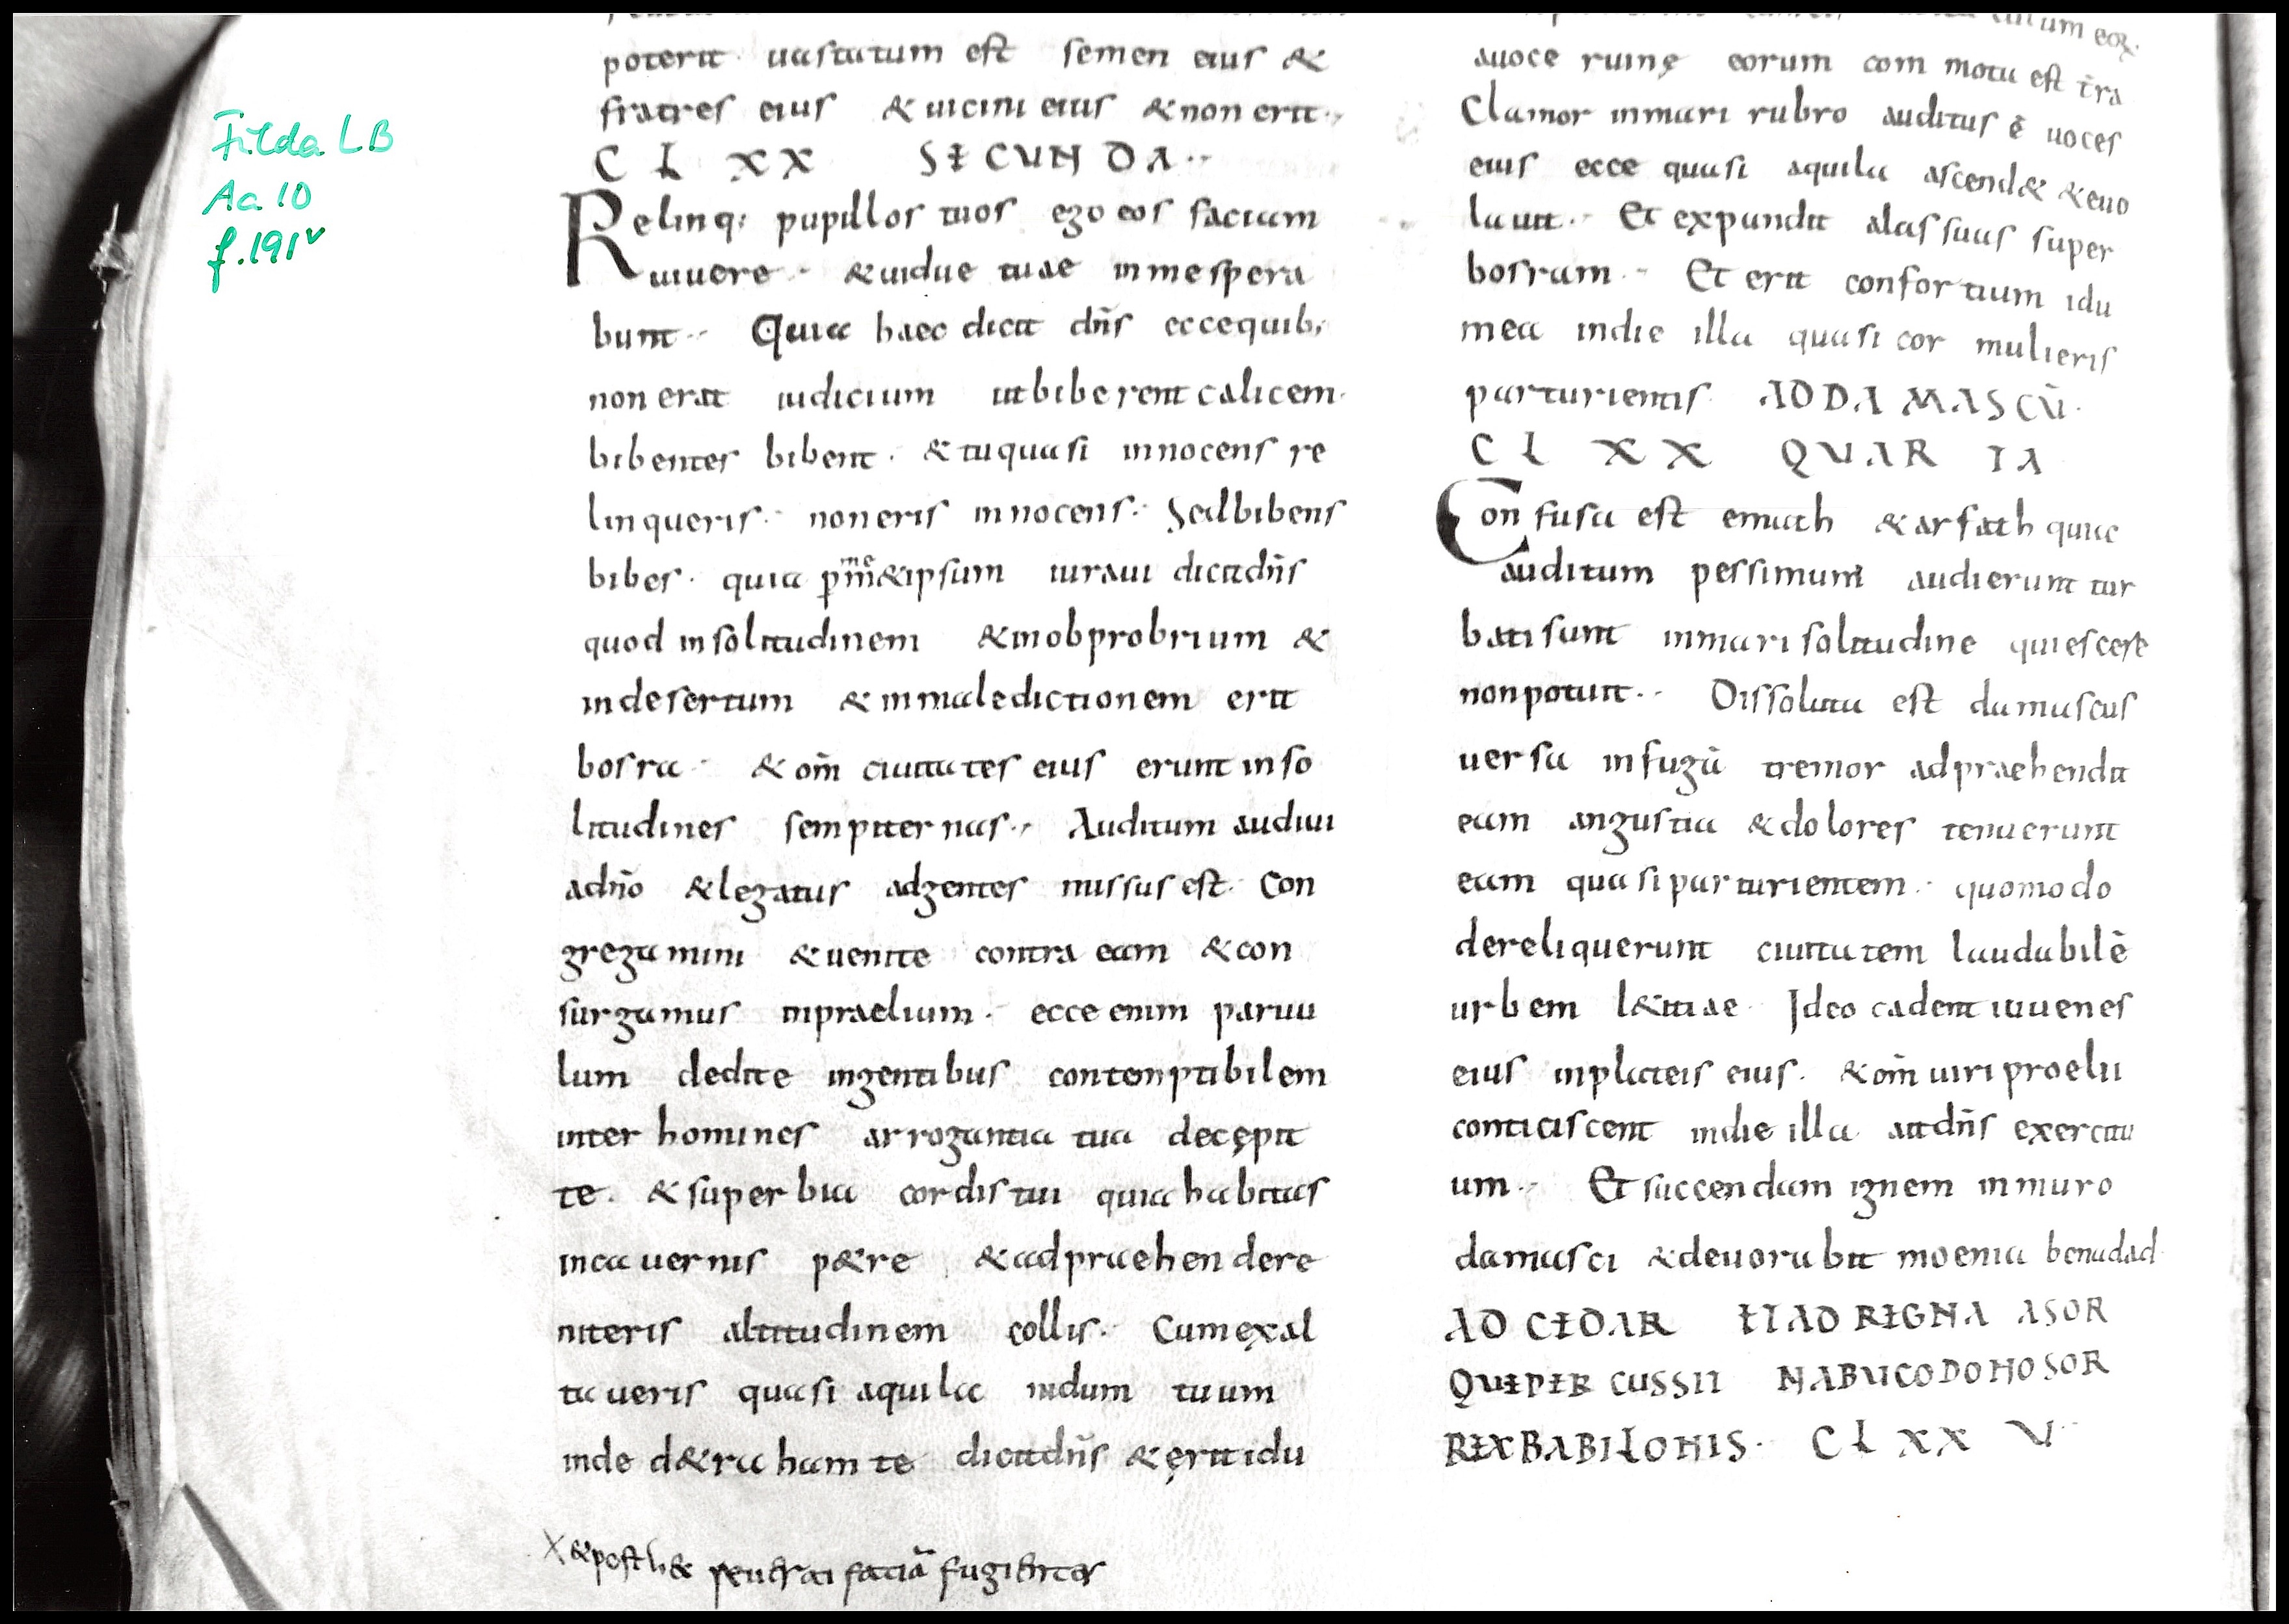 Fulda LB
Aa 10
f. 191v
poterit· uastatum est semen eius &
fratres eius & uicini eius & non erit·,
C L XX SECUNDA··
Relinq; pupillos tuos ego eos faciam
uiuere·· & uidue tuae in me spera
bunt·· Quia haec dicit dn̄s ecce quib;
non erat iudicium ut biberent calicem·
bibentes bibent· & tu quasi innocens re
linqueris·· non eris innocens·· Sed bibens
bibes· quia p̱ m̄&ipsum iuraui dicit dn̄s
quod in solitudinem & in obprobrium &
in desertum & in maledictionem erit
bosra·· & om̄ ciuitates eius erunt in so
litudines sempiternas·, Auditum audiui
a dn̄o & legatus ad gentes missus est· Con
gregamini & uenite contra eam & con
surgamus in praelium· ecce enim paruu
lum dedi te in gentibus contemptibilem
inter homines arrogantia tua decępit
te· & superbia cordis tui quia habitas
in cauernis p&re & adpraehendere
niteris altitudinem collis·· Cum exal
taueris quasi aquila nidum tuum
inde d&raham te dicit dn̄s & erit idu
X & post h& fugientes
eoꝝ·
a uoce ruinę eorum commota est t̄ra
Clamor in mari rubro auditus ē uoces
eius ecce quasi aquila ascend& & euo
lauit·· Et expandit alas suas super
bosram·· Et erit confortium idu
mea in die illa quasi cor mulieris
parturientis· AD DAMASCŪ·
C L XX QUARTA
Confusa est emath & arfath quia
auditum pessimum audierunt tur
bati sunt in mari solitudine quiescere
non potuit·· Dissoluta est damascus
uersa in fugā tremor adpraehendit
eam angustia & dolores tenuerunt
eam quasi parturientem·· quomodo
dereliquerunt ciuitatem laudabilē
urbem l&itiae· Ideo cadent iuuenes
eius in plateis eius· & om̄ uiri proelii
conticiscent in die illa· ait dn̄s exercitu
um·· Et succendam ignem in muro
damasci & deuorabit moenia benadad
AD CEDAR ET AD REGNA ASOR
QUE PERCUSSIT NABUCODONOSOR
REX BABILONIS· C L XX V··